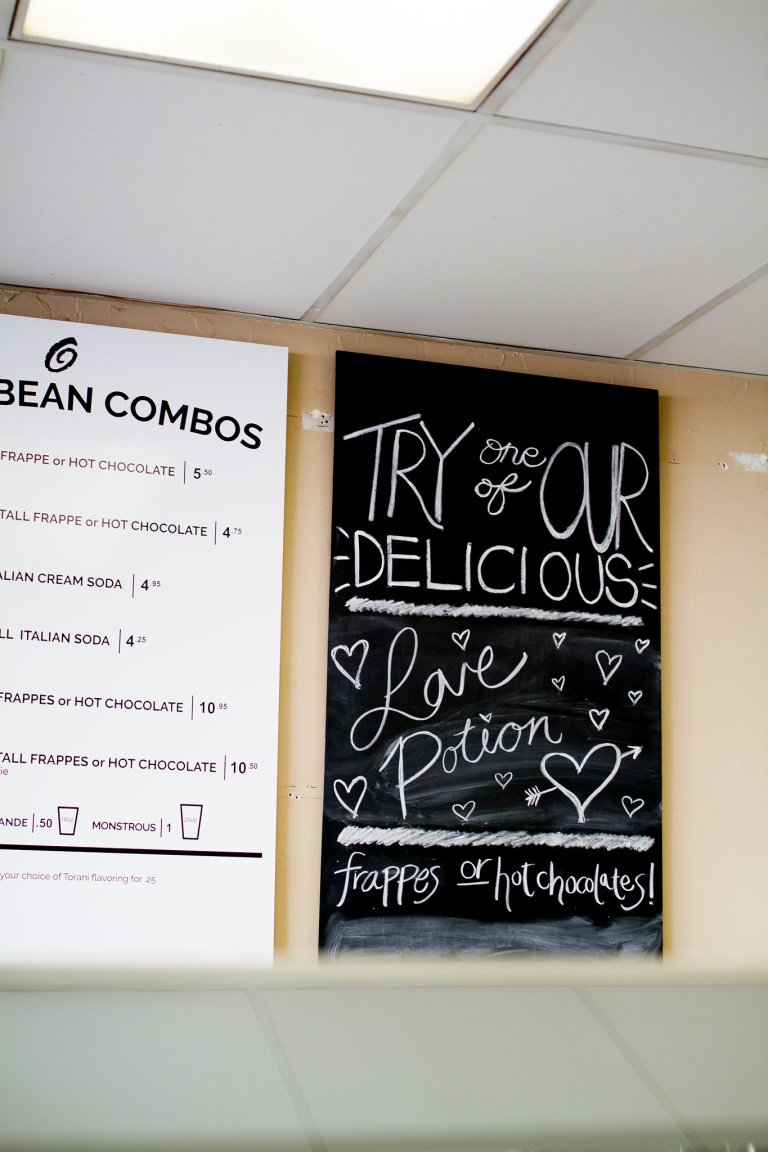 BEAN COMBOS
FRAPPE or HOT CHOCOLATE | 5.50
TALL FRAPPE or HOT CHOCOLATE | 4.75
ALIAN CREAM SODA | 4.95
LL ITALIAN SODA | 4.25
FRAPPES or HOT CHOCOLATE | 10.95
TALL FRAPPES or HOT CHOCOLATE | 10.50
ie
ANDE | .50 16oz MONSTROUS | 1 20oz
your choice of Torani flavoring for .25
TRY one of OUR
DELICIOUS
Love
Potion
frappes or hot chocolates!